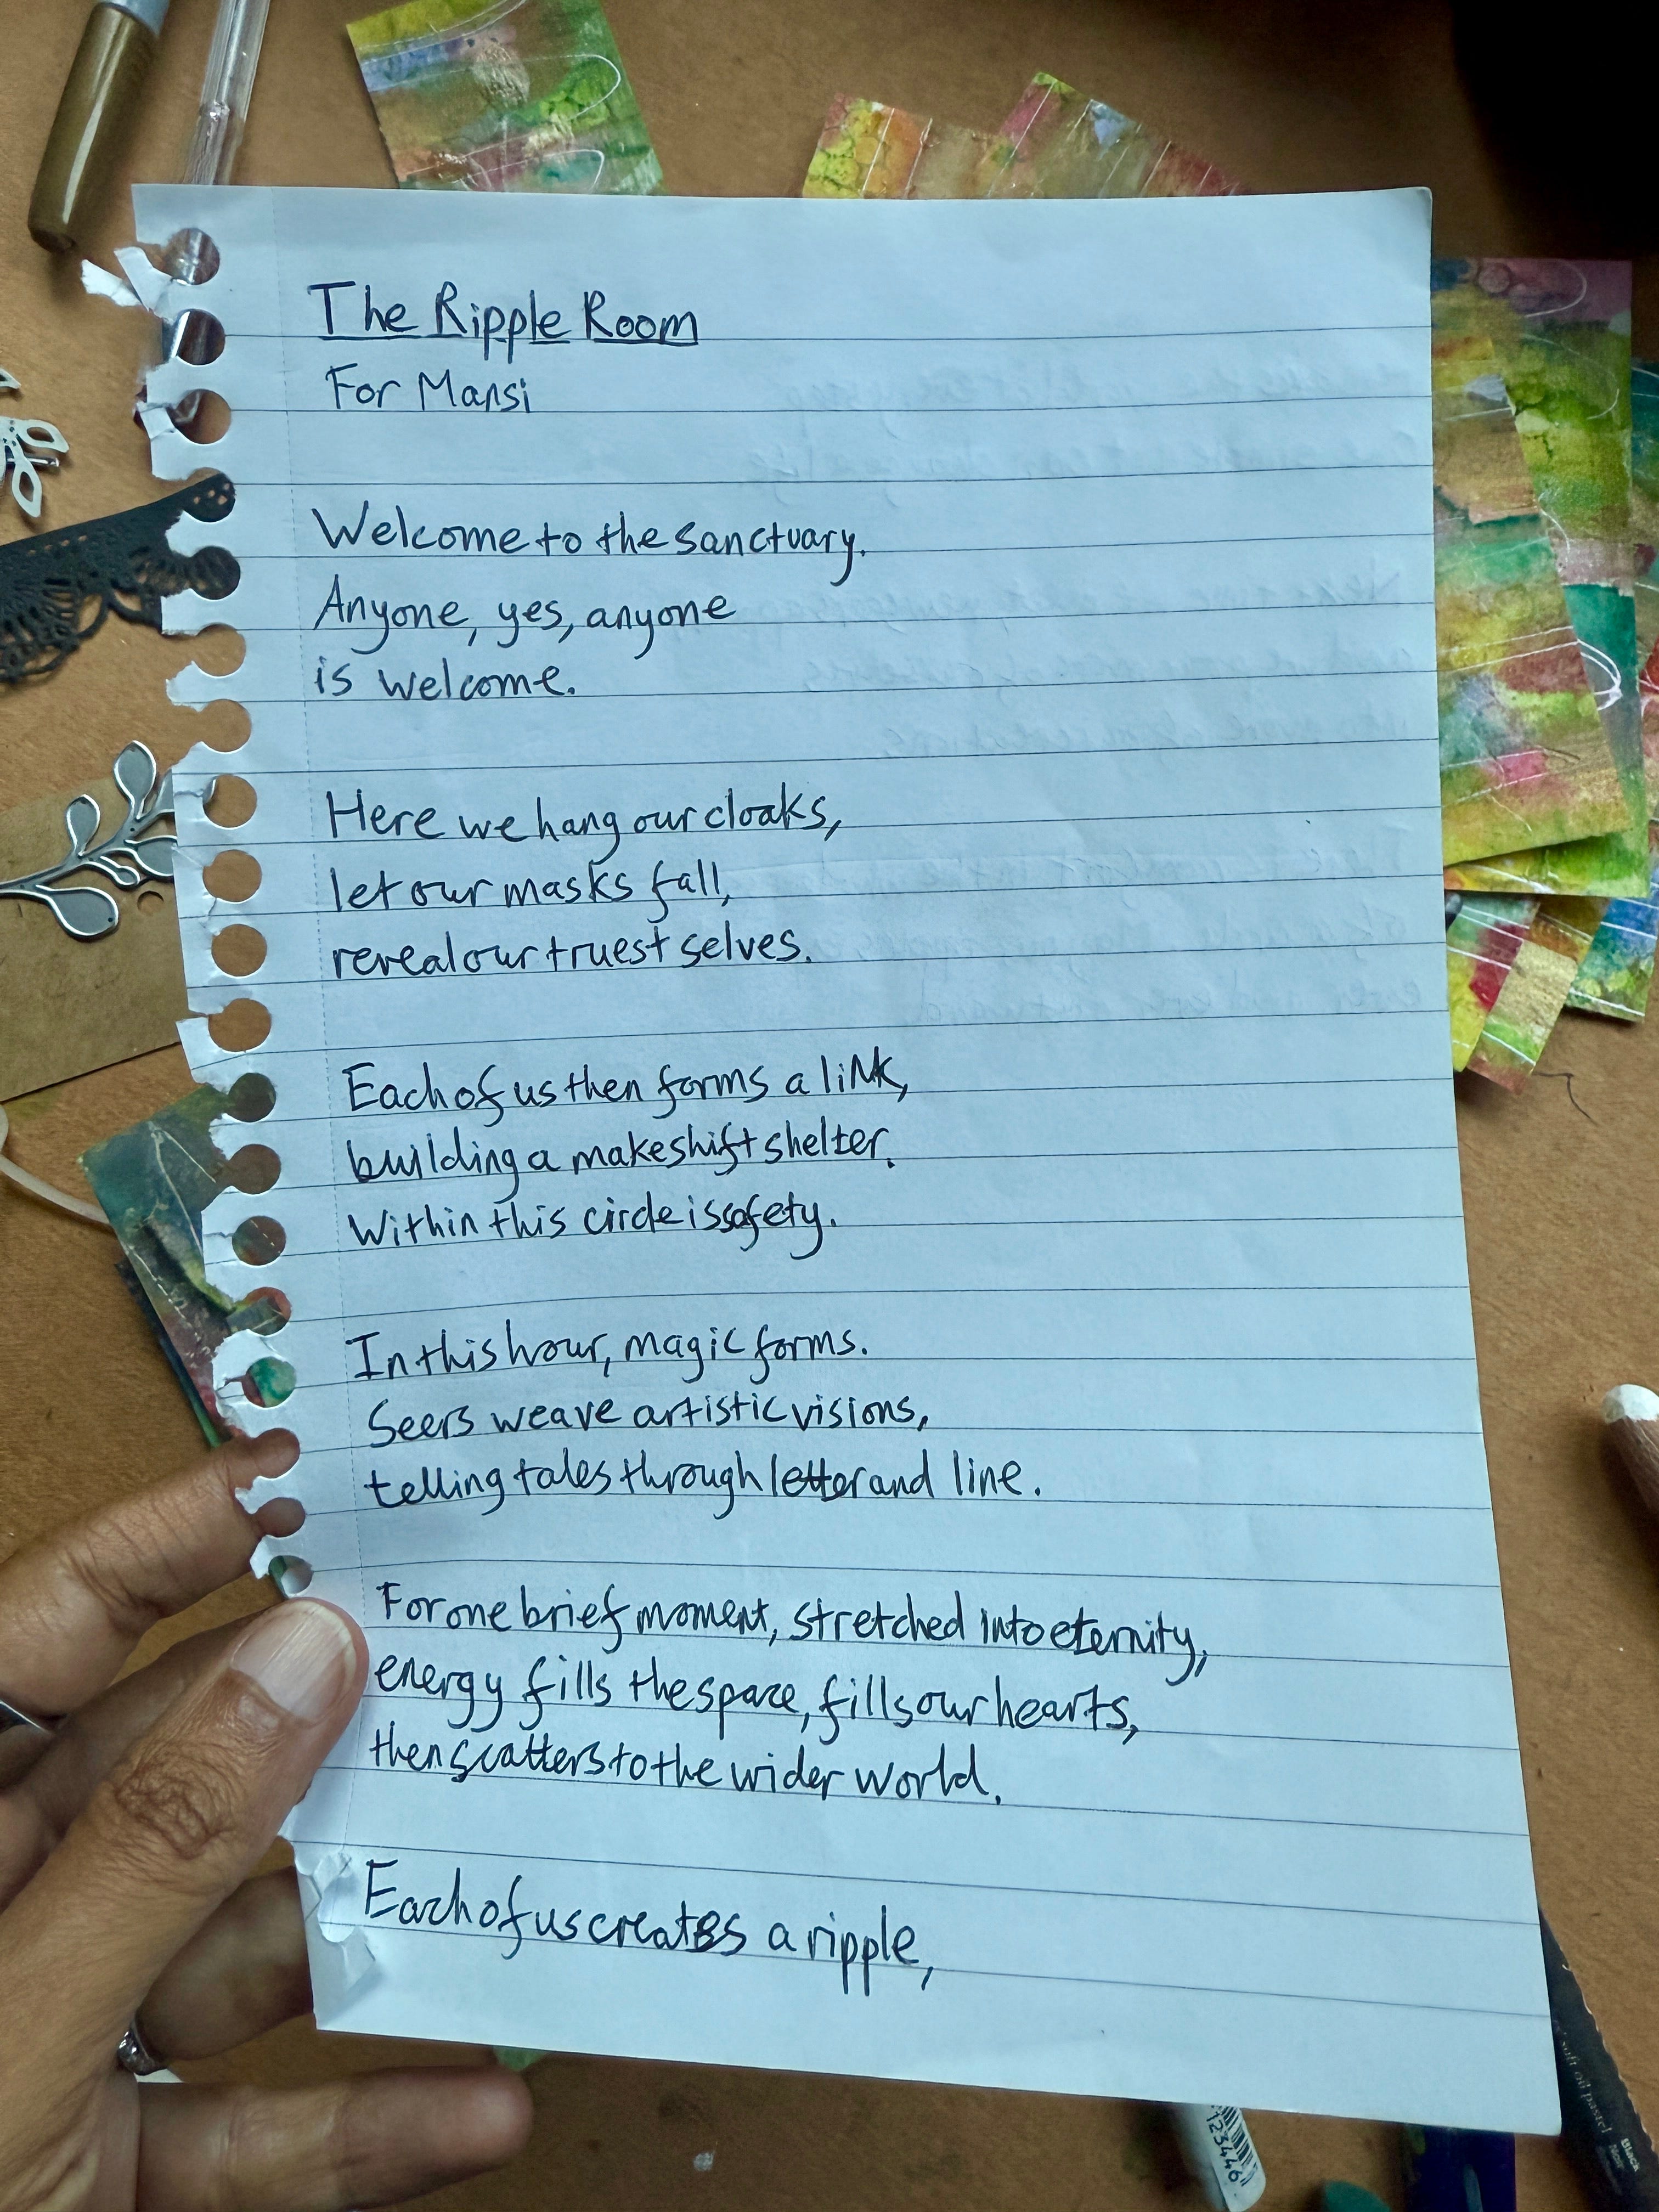 The Ripple Room
For Mansi
Welcome to the sanctuary.
Anyone, yes, anyone
is welcome.
Here we hang our cloaks,
let our masks fall,
reveal our truest selves.
Each of us then forms a link,
building a makeshift shelter.
Within this circle is safety.
In this hour, magic forms.
Seers weave artistic visions,
telling tales through letter and line.
For one brief moment, stretched into eternity,
energy fills the space, fills our hearts,
then scatters to the wider world.
Each of us creates a ripple,
soft oil pastel
Black